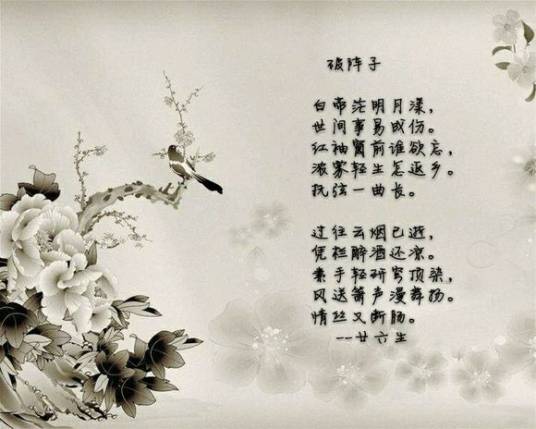 破阵子
白帝沱明月漾,
世间事易成伤。
红袖窗前谁欲忘,
浓雾轻尘怎返乡。
抚弦一曲长。
过往云烟已逝,
凭栏醉酒还凉。
素手轻研穹顶染,
风送箫声漫舞扬。
情丝又断肠。
--廿六生